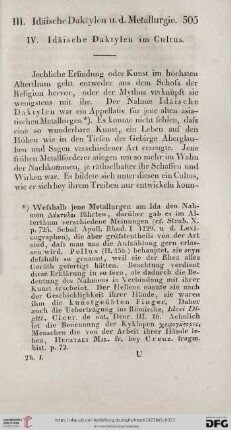 III. Idäische Daktylen u. d. Metallurgie. 305
IV. Idäische Daktylen im Cultus.
Jechliche Erfindung oder Kunst im höchsten
Alterthum geht entweder aus dem Schofs der
Religion hervor, oder der Mythus verknüpft sie
wenigstens mit ihr. Der Nahme Idäische
Daktylen war ein Appellativ für jene alten asia-
tischen Metallurgen*). Es konnte nicht fehlen, dafs
eine so wunderbare Kunst, ein Leben auf den
Höhen wie in den Tiefen der Gebirge Aberglau-
ben und Sagen verschiedener Art erzeugte. Jene
frühen Metallfoderer stiegen um so mehr im Wahn
der Nachkommen, je räthselhafter ihr Schaffen und
Wirken war. Es bildete sich unter diesen ein Cultus,
wie er sich bey ihrem Treiben nur entwickeln konn-
*) Wefshalb jene Metallurgen am Ida den Nah-
men führten, darüber gab es im Al-
terthum verschiedene Meinungen (cf. Strab. X.
p. 725. Schol. Apoll. Rhod. I. 1129. u. d. Lexi-
cographen), die aber gröfstentheils von der Art
sind, dafs man uns die Aufzählung gern erlas-
sen wird. Pollux (II. 156.) behauptet, sie seyn
defshalb so genannt, weil sie der Rhea alles
Geräth gefertigt hätten. Beachtung verdient
diese Erklärung in so fern, als dadurch die Be-
deutung des Nahmens in Verbindung mit ihrer
Kunst erscheint. Der Hellene nannte sie nach
der Geschicklichkeit ihrer Hände, sie waren
ihm die kunstgeübten Finger. Daher
auch die Uebertragung des Römers, Idaei Di-
giti, Cicer. de nat. Deor. III. 16. Aehnlich
ist die Benennung der Kyklopen
Menschen die von der Arbeit ihrer Hände le-
ben, Hecataei Mil. fr. bey Creuz. fragm.
hist. p. 72.
Th. I. U